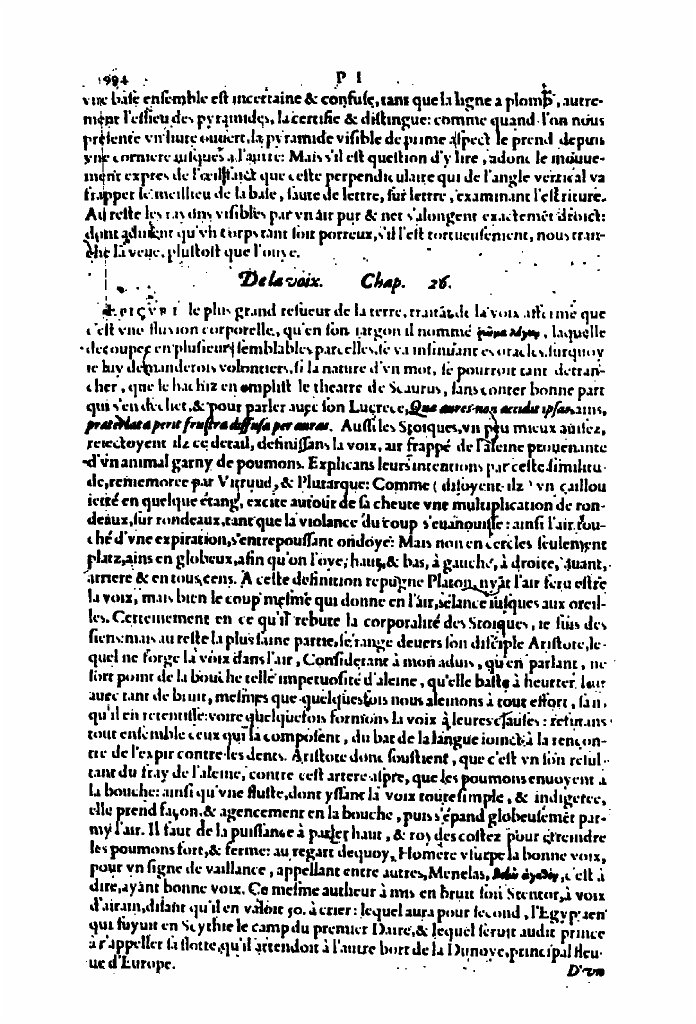 1994 P I
vne base ensemble est incertaine & confuse, tant que la ligne a plomb, autre-
ment l'essieu des pyramides, la certifie & distingue: comme quand l'on nous
presente vn liure ouuert, la pyramide visible de prime aspect le prend depuis
vne corniere iusques a l'autre: Mais s'il est question d'y lire, adonc le mouue-
ment expres de l'œil, que ceste perpendiculaire qui de l'angle vertical va
frapper le meillieu de la base, saute de lettre, sur lettre, examinant l'escriture.
Au reste les rayons visibles par vn air pur & net s'alongent exactemēt droict:
dont aduient qu'vn corps tant soit porreux, s'il l'est tortueusement, nous tran-
che la veue, plustost que l'ouye.
De la voix. Chap. 26.
EPICVRE le plus grand resueur de la terre, traitāt de la voix afferme que
c'est vne fluxion corporelle, qu'en son iargon il nomme , laquelle
decoupee en plusieurs semblables parcelles, se va insinuant es oracles, surquoy
ie luy demanderois volontiers, si la nature d'vn mot, se pourroit tant detran-
cher, que le hachiz en emplist le theatre de Scaurus, sans conter bonne part
qui s'en dechet, & pour parler auec son Lucrece, Quæ aures non accidit ipsas, ains,
præterlata perit frustra diffusa per auras. Aussi les Stoiques, vn peu mieux auisez,
reiectoyent ilz ce detail, definissans la voix, air frappé de l'aleine prouenante
d'vn animal garny de poumons. Explicans leurs intentions par ceste similitu-
de, rememoree par Vitruud, & Plutarque: Comme (disoyent-ilz) vn caillou
ietté en quelque étang, excite autour de sa cheute vne multiplication de ron-
deaux, sur rondeaux, tant que la violance du coup s'euanouisse: ainsi l'air tou-
ché d'vne expiration, s'entrepoussant ondoye: Mais non en cercles seulement
platz, ains en globeux, afin qu'on l'oye, haut, & bas, à gauche, à droite, auant,
arriere & en tous cens. A ceste definition repugne Platon, nyāt l'air feru estre
la voix, mais bien le coup mesme qui donne en l'air, s'elance iusques aux oreil-
les. Certernement en ce qu'il rebute la corporalité des Stoiques, ie suis des
siens: mais au reste la plus saine partie, se range deuers son disciple Aristote, le-
quel ne forge la voix dans l'air, Considerant à mon aduis, qu'en parlant, ne
sort point de la bouche telle impetuosité d'aleine, qu'elle baste à heurter l'air
auec tant de bruit, mesmes que quelquesfois nous alemons à tout effort, san,
qu'il en retentisse: voire quelquefois formons la voix à leures closes: retinans
tout ensemble ceux qui la composent, du bat de la langue ioinct à la rencon-
tre de l'expir contre les dents. Aristote donc soustient, que c'est vn son resul-
tant du fray de l'aleine, contre cest artere aspre, que les poumons enuoyent à
la bouche: ainsi qu'vne fluste, dont yssant la voix toute simple, & indigeree,
elle prend façon, & agencement en la bouche, puis s'épand globeusemēt par-
my l'air. Il faut de la puissance à parler haut, & roydes costez pour étreindre
les poumons fort, & ferme: au regart dequoy, Homere vsurpe la bonne voix,
pour vn signe de vaillance, appellant entre autres, Menelas, , c'est à
dire, ayant bonne voix. Ce mesme autheur à mis en bruit son Stentor, à voix
d'airain, disant qu'il en valoit 50. à crier: lequel aura pour second, l'Egyptien
qui suyuit en Scythie le camp du premier Daire, & lequel seruit audit prince
à r'appeller sa flotte, qu'il attendoit à l'autre bort de la Dunoye, principal fleu-
ue d'Europe.
D'vn